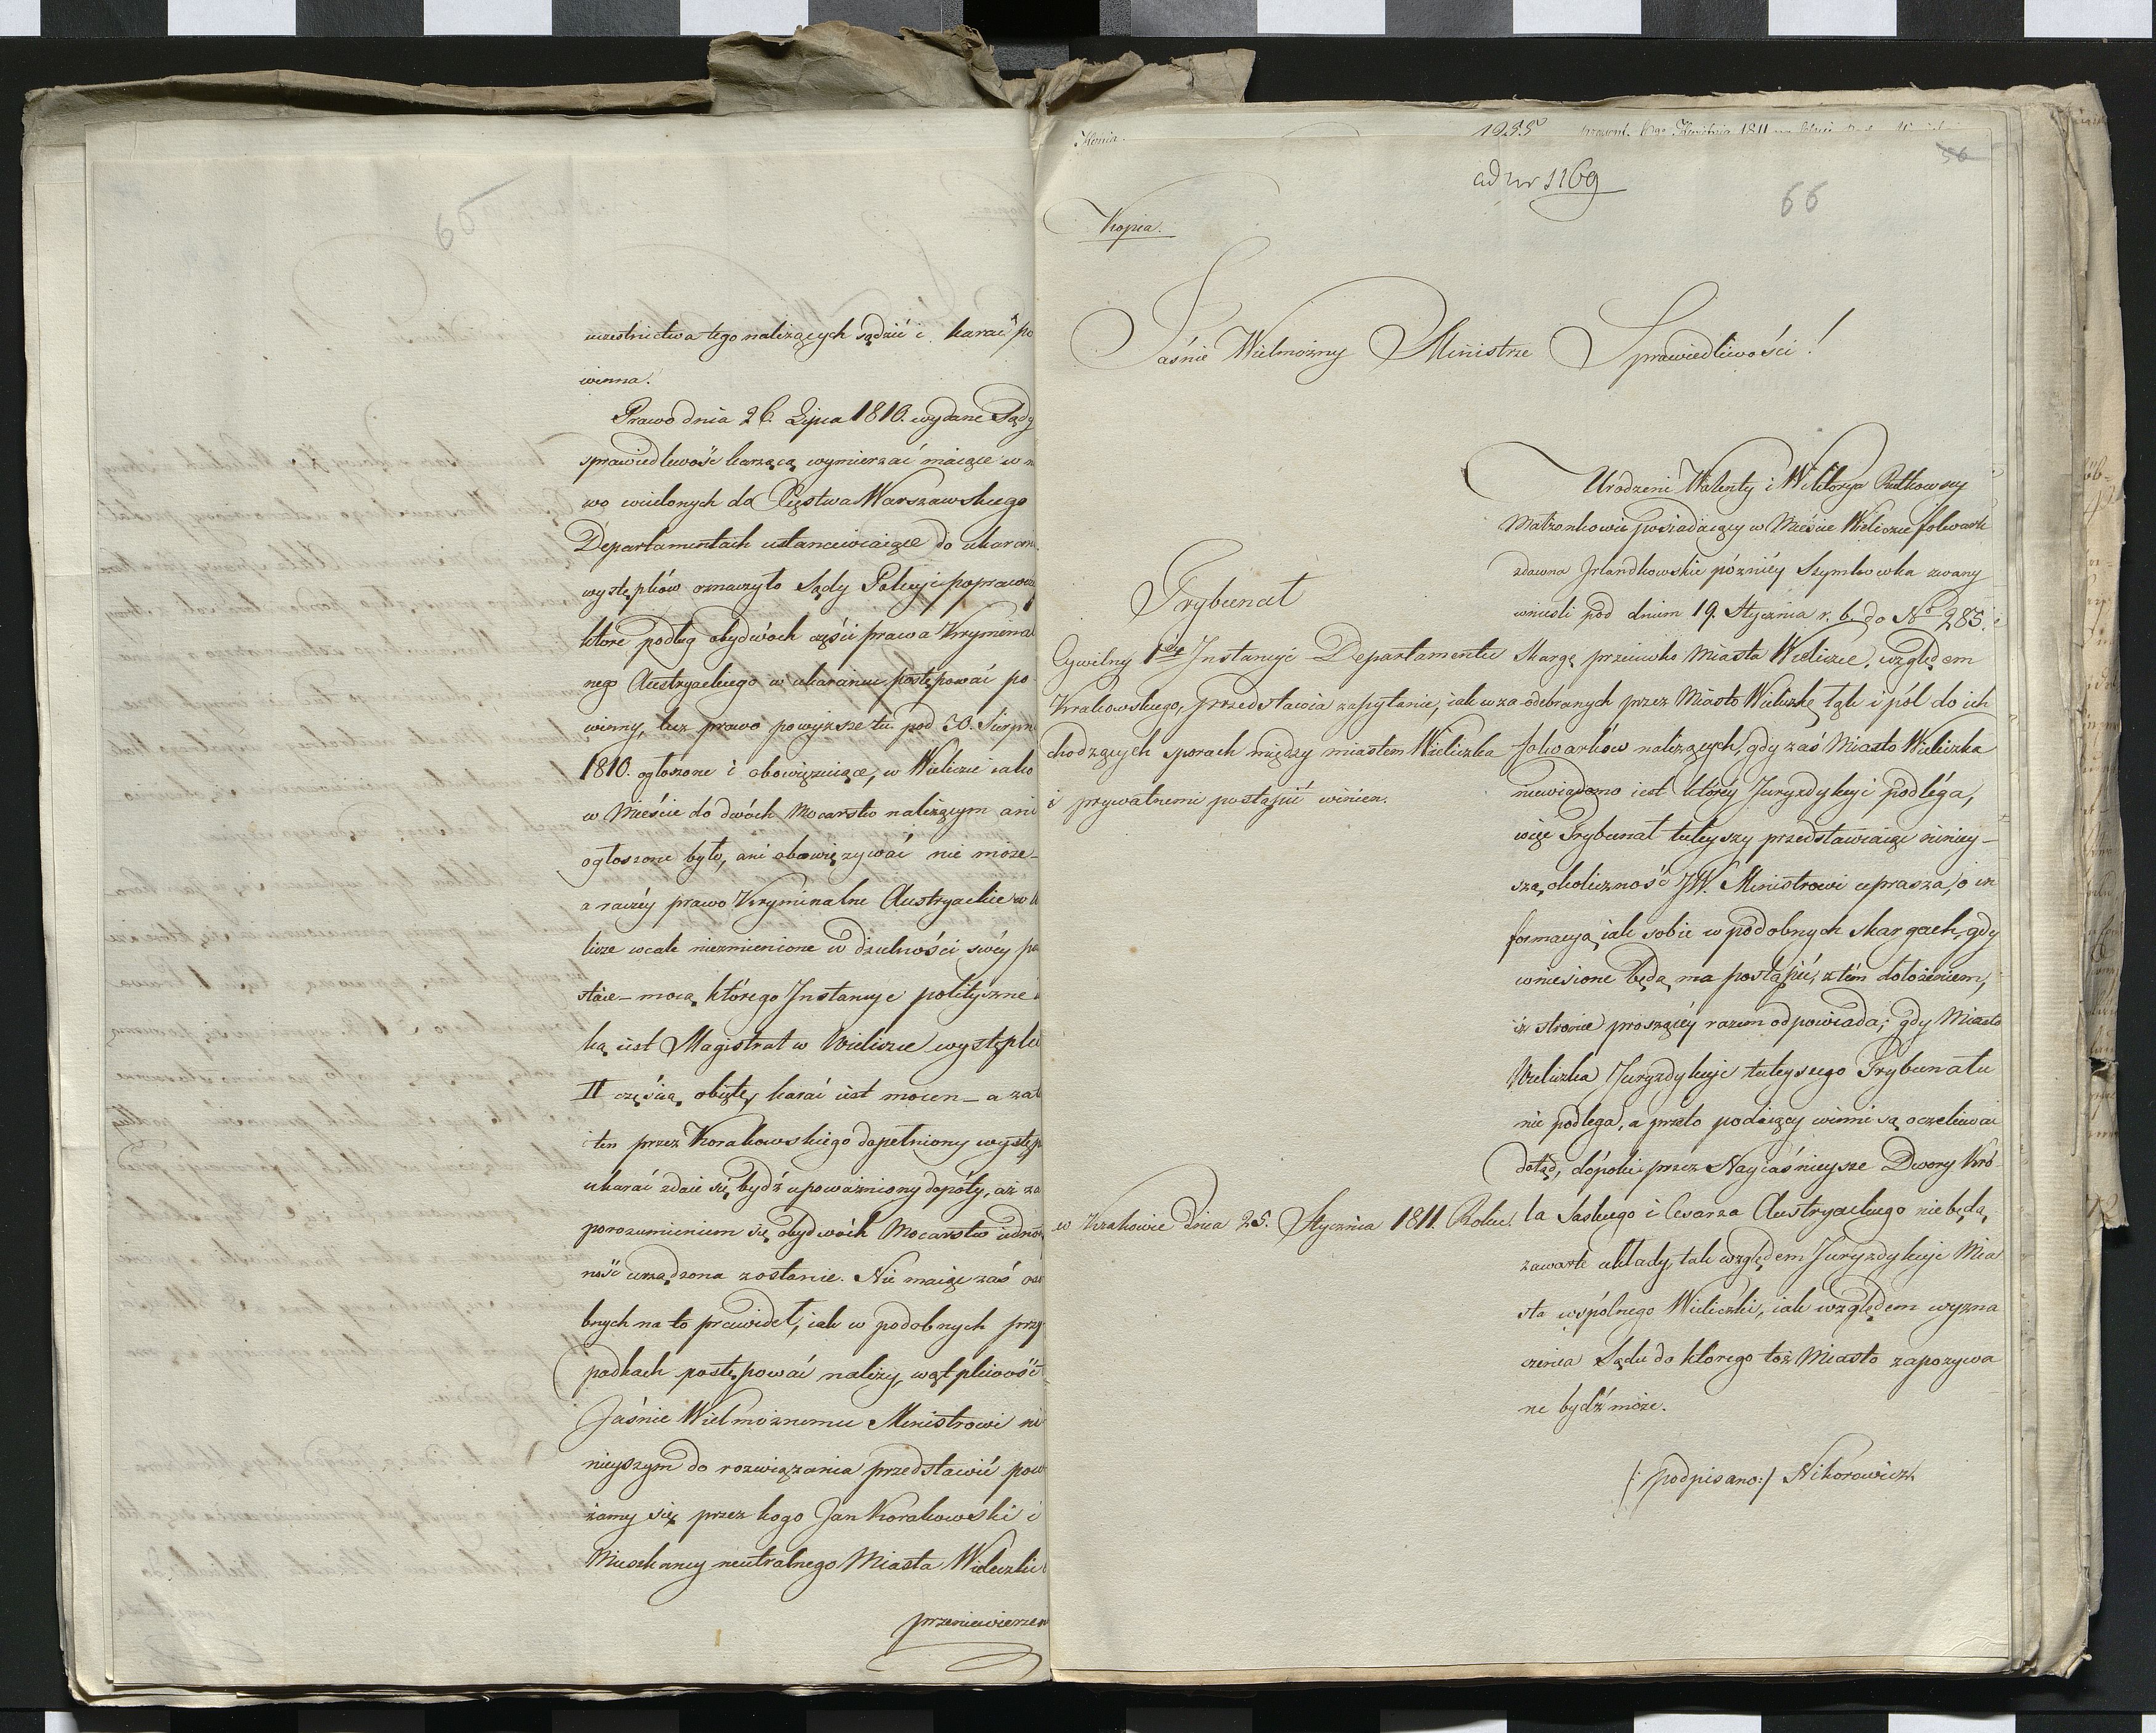 65
uczestnictwa tego należących sądzić i karać po
winna.
Prawo dnia 26. Lipca 1810. wydane Sądy
sprawiedliwość karzącą wymierzać maiące w n
wo wcielonych do Xięstwa Warszawskiego
Departamentach ustanowiaiące do ukarani
występków oznaczyło Sądy Policyi poprawcz
które podług obydwóch części prawa Krymina
nego Austryackiego w ukaraniu postępować po
winny, lecz prawo powyższe tu pod 30. Sierpn
1810. ogłoszone i obowięzuiące, w Wieliczce iako
w Mieście do dwóch Mocarstw należącym ani
ogłoszone było, ani obowięzywać nie może_
a raczéy prawo Kryminalne Austryackie w W
liczce wcale niezmienione w dzielności swéy po
staie_ mocą którego Instancye polityczne i
ką iest Magistrat w Wieliczce występki
II częścią obięte, karać iest mocen_ a zat
i ten przez Korakowskiego dopełniony występ
ukarać zdaie się bydź upoważniony dopóty, aż za
porozumieniem się obydwóch Mocarstw iedno
ność urządzona zostanie. Nie maiąc zaś oso
bnych na to prawideł, iak w podobnych przy
padkach postępować należy, wątpliwość
Jaśnie Wielmożnemu Ministrowi ni
nieyszym do rozwiązania przedstawić pow
żamy się przez kogo Jan Korakowski i
Mieszkańcy neutralnego Miasta Wieliczki
przeniewierzen
1255
adnr 1169
56
66
Kopia.
Jaśnie Wielmożny Ministrze Sprawiedliwości!
Trybunał
Cywilny 1éy Instancyi Departamentu
Krakowskiego, Przedstawia zapytanie, iak w za
chodzących sporach między miastem Wieliczka
i prywatnemi postąpić winien.
w Krakowie dnia 25. Stycznia 1811. Roku.
Urodzeni Walenty i Wiktorya Rutkowscy
Małżonkowie posiadaiący w Mieście Wieliczce folwark
zdawna Irlandkowskie późniéy Szymkowka zwany
wnieśli pod dniem 19. Stycznia r. b. do No 285.
skargę przeciwko Miasta Wieliczce, względem
odebranych przez Miasto Wieliczkę łąk i pól do ich
folwarków należących, gdy zaś Miasto Wieliczka
niewiadomo iest któréy Juryzdykcyi podléga,
więc Trybunał tuteyszy przedstawiaiąc niniey_
szą okoliczność JW. Ministrowi uprasza, o in
formacyą iak sobie w podobnych skargach, gdy
wniesione będą ma postąpić, z tém dołożeniem,
iż stronie proszącéy razem odpowiada; gdy Miasto
Wieliczka Juryzdykcyi tuteyszego Trybunału
nie podlega, a przeto podaiący winni są oczekiwać
dotąd, dópoki przez Nayiaśnieysze Dwory Kró
la Saskiego i Cesarza Austryackiego nie będą
zawarte układy, tak względem Juryzdykcyi Mia
sta wspólnego Wieliczki, iak względem wyzna
czenia Sądu do którego toż Miasto zapozywa
ne bydź może.
/:podpisano:/ Nikorowicz